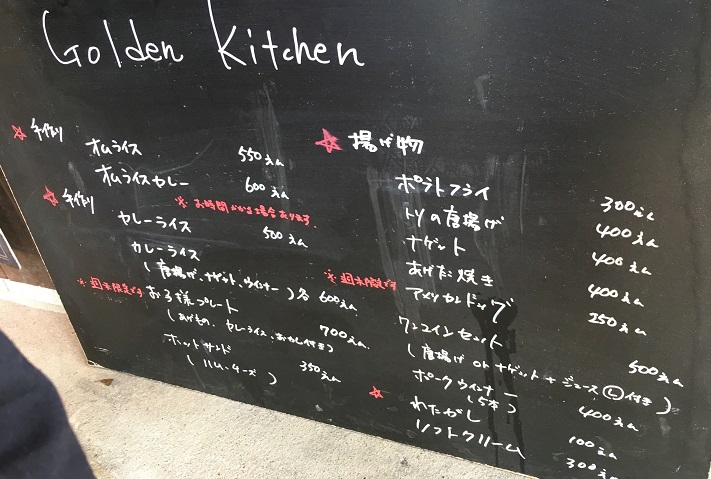 Golden Kitchen
☆ 手作り
オムライス 550えん
オムライスカレー 600えん
※ お時間かかる場合あります。
☆ 手作り
カレーライス 500えん
カレーライス
(唐揚げ、ナゲット、ウインナー) 各 600えん
※週末限定です
お子様プレート 700えん
(あげもの、カレーライス、おかし付き)
ホットサンド 350えん
(ハム・チーズ)
☆ 揚げ物
ポテトフライ 300えん
トリの唐揚げ 400えん
ナゲット 400えん
あげたこ焼き 400えん
※週末限定です
アメリカンドッグ 250えん
ワンコインセット 500えん
(唐揚げ or ナゲット + ジュースⓁ付き)
ポークウインナー 400えん
(5本)
☆
わたがし 100えん
ソフトクリーム 300えん